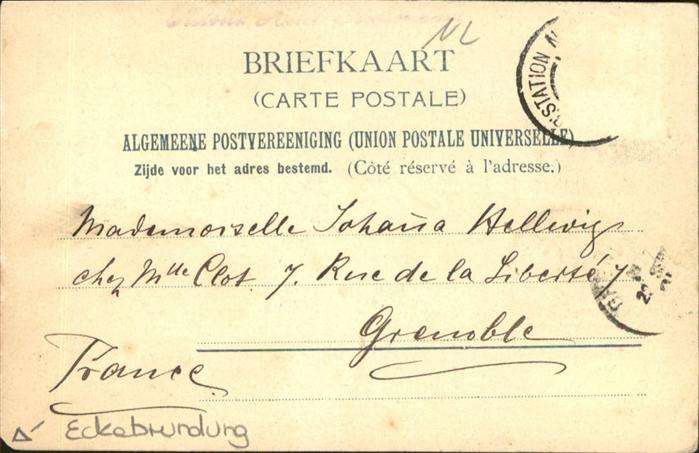 NL
BRIEFKAART
(CARTE POSTALE)
STATION N
ALGEMEENE POSTVEREENIGING (UNION POSTALE UNIVERSELLE)
Zijde voor het adres bestemd. (Côté réservé à l'adresse.)
Mademoiselle Johaña Hellwig
chez Mlle Clot 7. Rue de la Liberté 7.
Grenoble
France
Eckabrundung